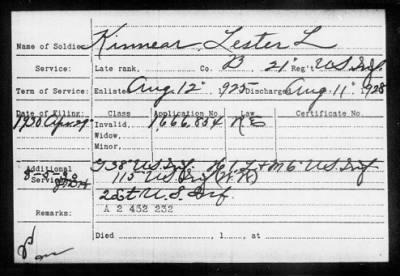 Name of Soldier: Kinnear, Lester L
Service: Late rank, Co. B, 21" Reg't US Inf.
Term of Service: Enlisted Aug 12", 1925 Discharged Aug 11", 1928
Date of Filing: Class Application No. Law Certificate No.
1930 Apr. 29" Invalid, 1,666,854
Widow,
Minor,
Additional Services: G 38" US Inf. & M 6" US Inf
115" US Inf
U.S. Inf.
Remarks: A 2 452 232
Died , 1 , at